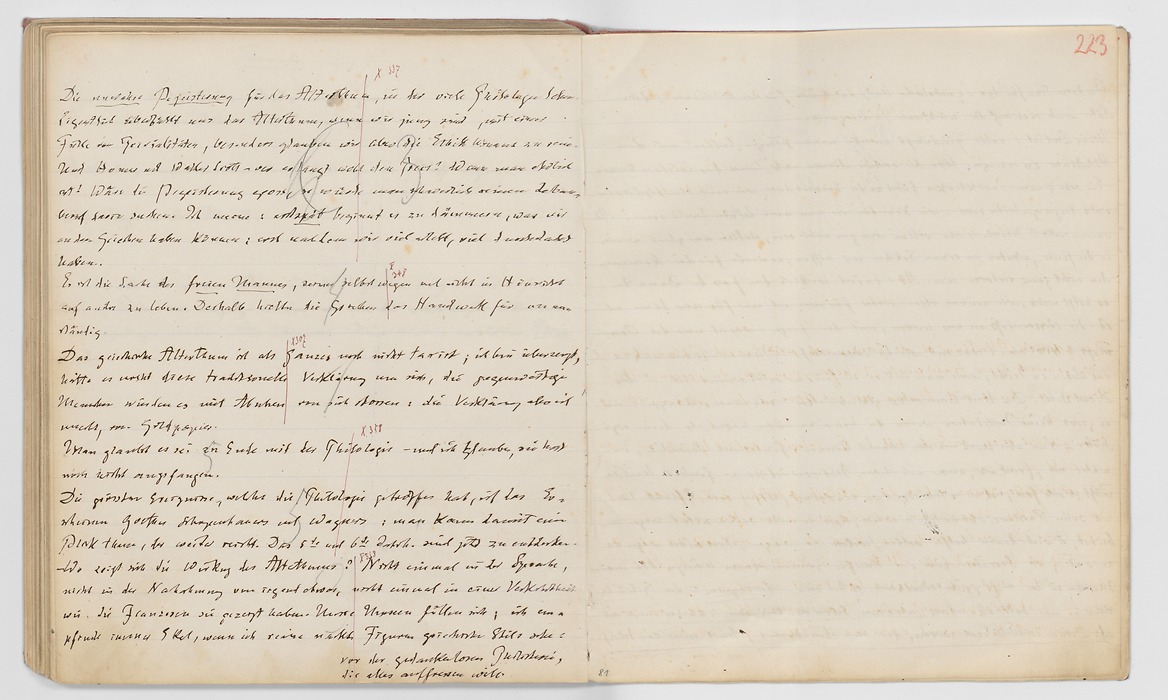 223
X 337
Die unwahre Begeisterung für das Alterthum, in der viele Philologen leben.
Eigentlich überfällt uns das Alterthum, wenn wir jung sind, mit einer
Fülle von Trivialitäten, besonders glauben wir über die Ethik hinaus zu sein.
Und Homer und Walter Scott – wer erlangt wohl den Preis? Wenn man ehrlich
ist! Wäre die Begeisterung gross, so würde man schwerlich seinen Lebens
beruf darin suchen. Ich meine: erst spät beginnt es zu dämmern, was wir
an den Griechen haben können: erst nachdem wir viel erlebt, viel durchdacht
haben.
X 348
Es ist die Sache des freien Mannes, seiner selbst wegen und nicht in Hinsicht
auf andre zu leben. Deshalb hielten die Griechen das Handwerk für unan
ständig.
X 307
Das griechische Alterthum ist als Ganzes noch nicht taxirt; ich bin überzeugt,
hätte es nicht diese traditionelle Verklärung um sich, die gegenwärtigen
Menschen würden es mit Abscheu von sich stossen: die Verklärung also ist
unecht, von Goldpapier.
X 358
Man glaubt es sei zu Ende mit der Philologie – und ich glaube, sie hat
noch nicht angefangen.
Die grössten Ereignisse, welche die Philologie getroffen hat, ist das Er-
scheinen Goethes Schopenhauers und Wagners: man kann damit einen
Blick thun, der weiter reicht. Das 5te und 6te Jahrh. sind jetzt zu entdecken.
Wo zeigt sich die Wirkung des Alterthums? Nicht einmal in der Sprache,
nicht in der Nachahmung von irgend etwas, nicht einmal in einer Verkehrtheit
wie die Franzosen sie gezeigt haben. Unsre Museen füllen sich; ich em-
pfinde immer Ekel, wenn ich reine nackte Figuren griechischen Stils sehe:
vor der gedankenlosen Philisterei,
die alles auffressen will.
81